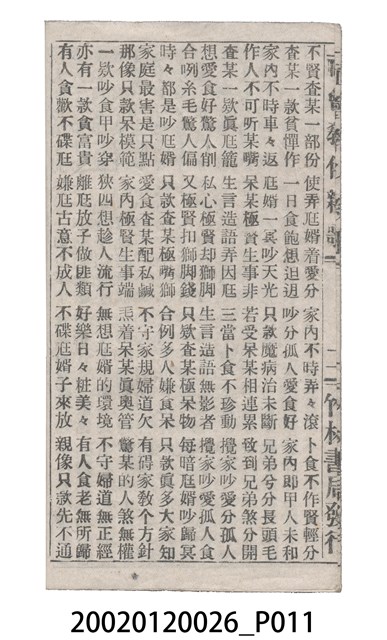 不賢查某一部份 使弄尪婿着愛分 家內不時弄々滾 卜食不作賢輕分
查某一款貧憚作 一日食飽想𨑨迌 吵分孤人愛食好 家內即甲人未和
家內不時車々返 尪婿一冥吵天光 只款魔病治未斷 兄弟兮分長頭毛
作人不可听某嘴 呆某極賢生事非 若受呆某相連累 致到兄弟煞分開
查某一款眞尪籠 生言造語弄因尪 三當卜食不珍動 攪家吵愛分孤人
想愛食好驚人削 私心極賢却獅脚 生言造語無影者 攪家吵愛孤人食
合咧糸毛驚人偏 又極賢扣獅脚錢 只欵查某極呆物 每暗尪婿吵歸冥
時々都是吵尪婿 只款查某極嘴獅 合例多人嫌食呆 只款眞多大家知
家庭最害是只點 愛食查某配私鹹 不守家規婦道欠 有碍家敎个方針
那像只款呆模範 家內極賢生事端 𢙺着呆某眞奧管 驚某的人煞無權
一欵吵食甲吵穿 狹四想趁人流行 無想尪婿的環境 不守婦道無正經
亦有一款貪富貴 離尪放子做匪類 好樂日々粧美々 有人食老無所歸
有人食歡不碟尪 嫌尪古意不成人 不碟尪婿子來放 親像只款先不通
二 竹林書局發行
20020120026_P011